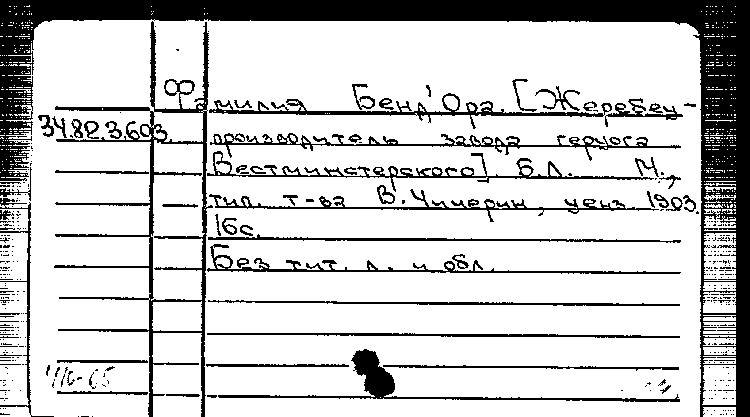 Фамилия Бенд'Ора. [Жеребец-
34.82.3.603. производитель завода герцога
Вестминстерского]. Б.Л. М.,
тип. т-ва В. Чичерин, ценз. 1903.
16с.
Без тит. л. и обл.